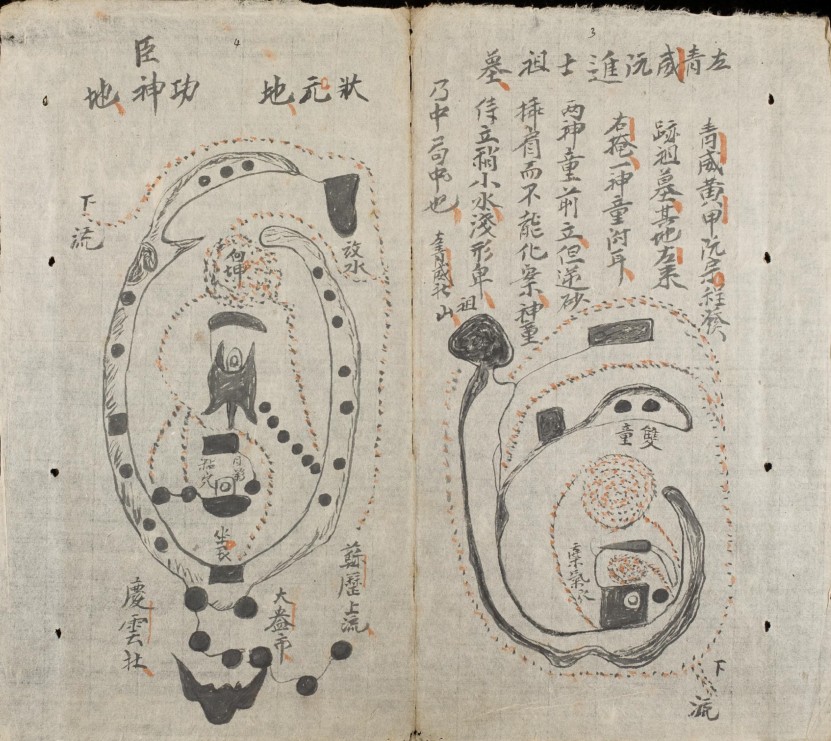 3
左青威阮進士祖墓
青威黃甲阮宗程發
跡祖墓其地左系
右掩一神童附耳
兩神童前立但逆砂
插肩而不能化案神童
侍立稍小水淺形卑
乃中局中也
青威社山
祖
雙童
案氣水
下流
4
狀元地
功神地
臣
放水
下流
向坤
坐艮
蘇歷上流
大盎市
慶雲社